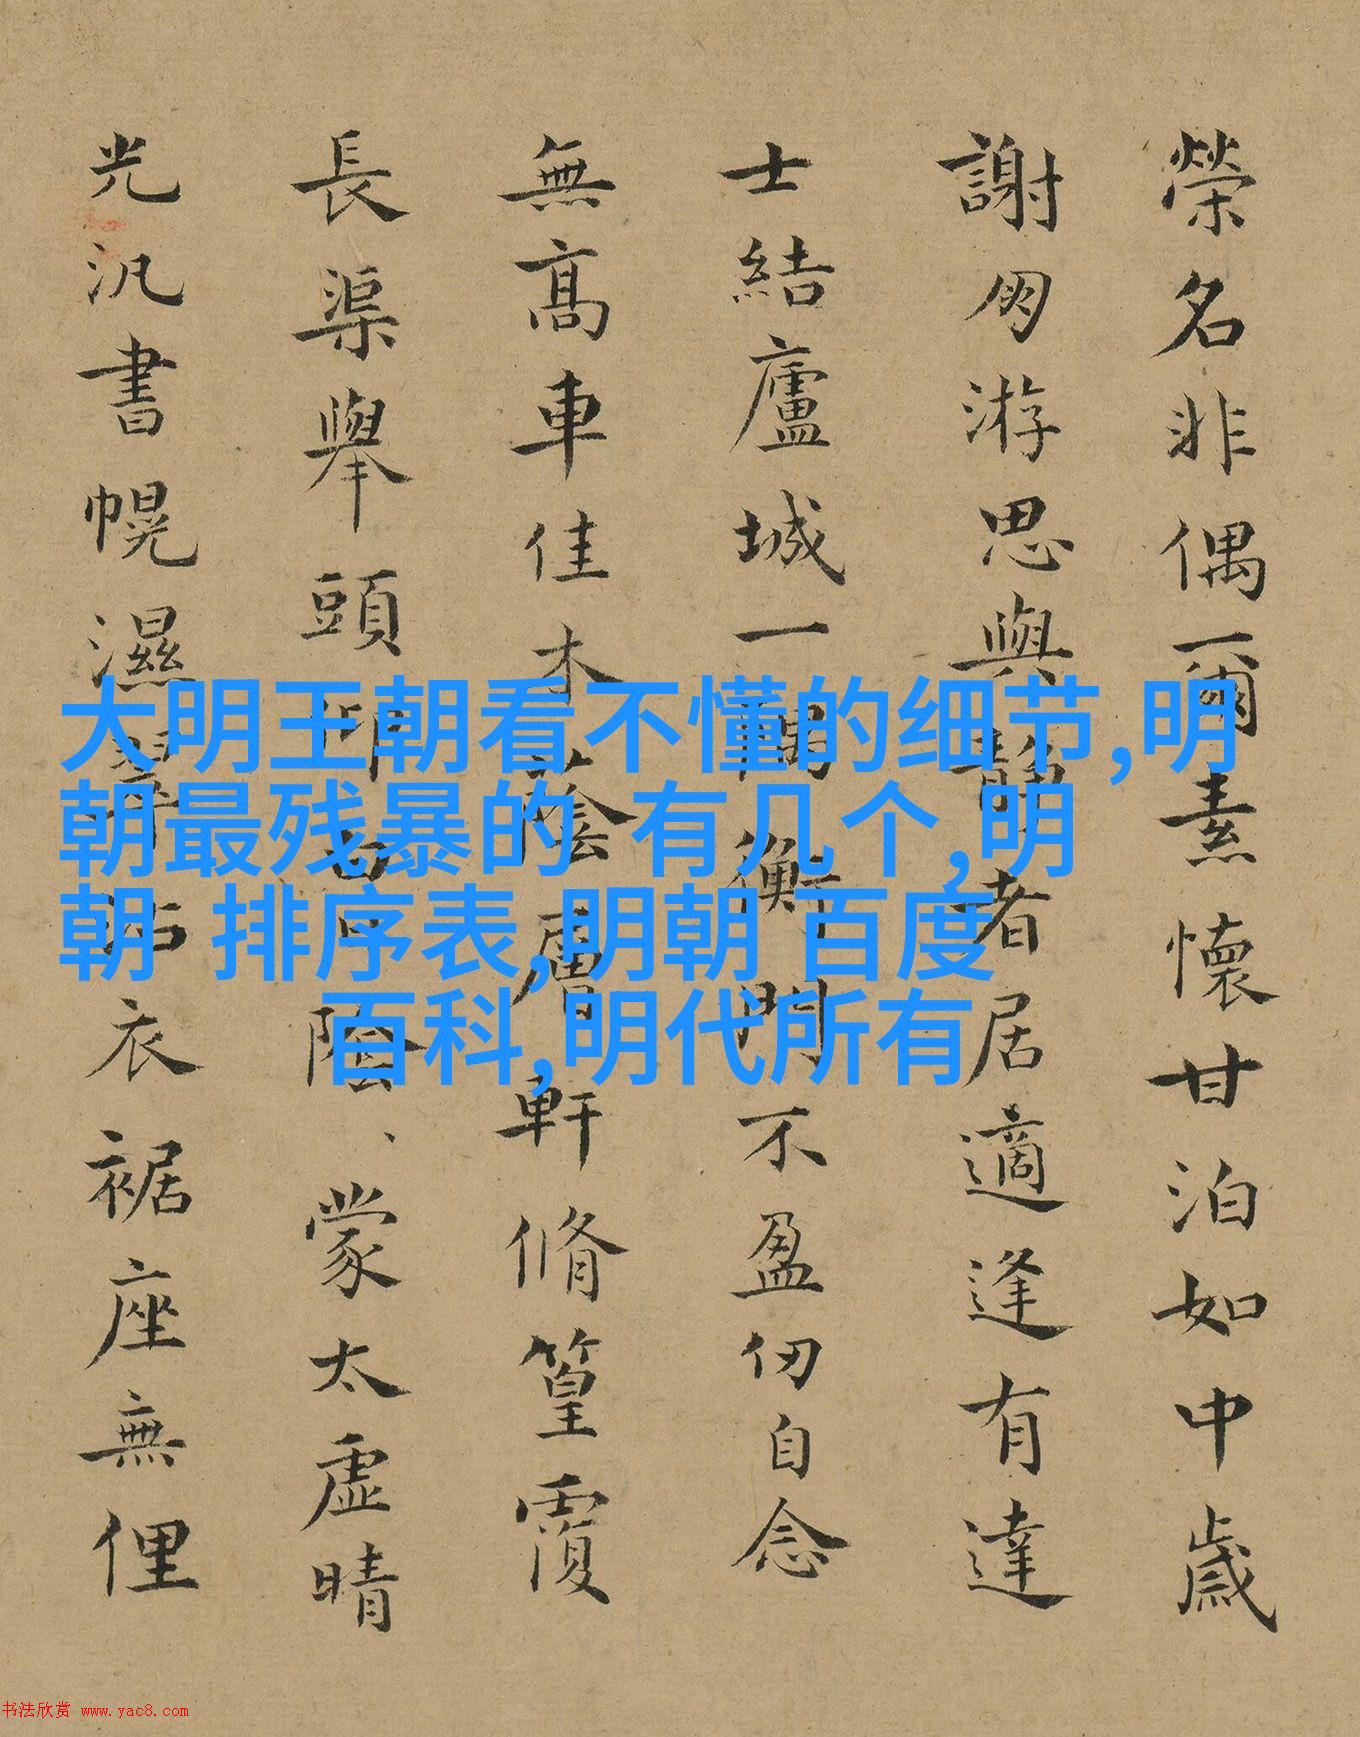 榮名非偶爾素懷甘泊如中歲
謝朋游思與靜者居適逢有達
士結廬城一隅衡門不盈仞自念
無髙車佳木蔭層軒脩篁覆
長渠舉頭陰蒙太虛晴
光汎書幌濕翠沾衣裾座無俚
大明王朝看不懂的细节,明
朝最残暴的 有几个,明
朝 排序表,明朝 百度
百科,明代所有
书法欣赏 www.yac8.com